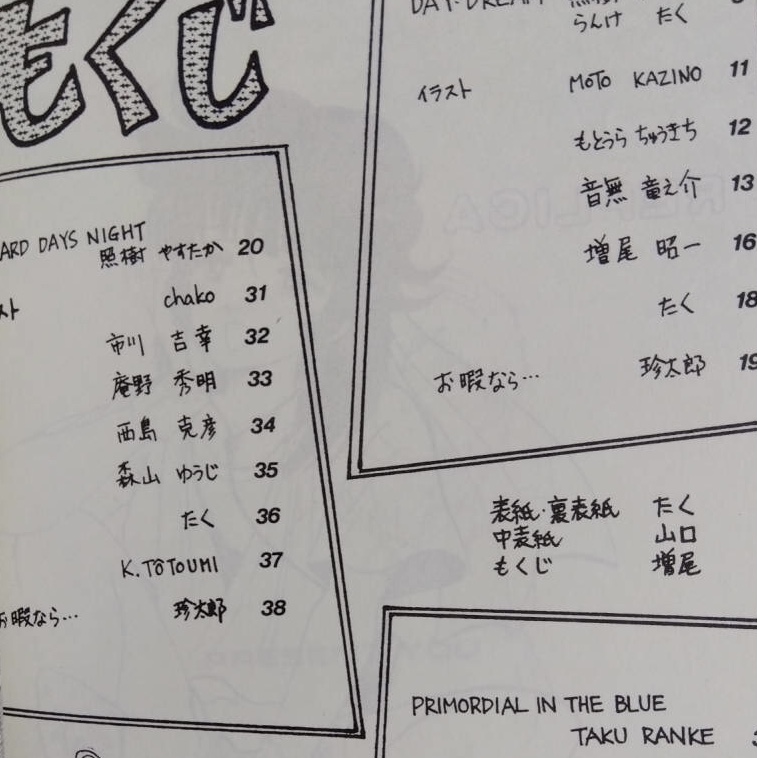 もくじ
ARD DAYS NIGHT
照樹 やすたか 20
スト
chako 31
市川 吉幸 32
庵野 秀明 33
西島 克彦 34
森山 ゆうじ 35
たく 36
K.TôTOUMI 37
お暇なら… 珍太郎 38
DAY・DREAM
らんけ たく
イラスト MOTO KAZINO 11
もとうら ちゅうきち 12
音無 竜之介 13
増尾 昭一 16
たく 18
お暇なら… 珍太郎 19
表紙・裏表紙 たく
中表紙 山口
もくじ 増尾
PRIMORDIAL IN THE BLUE
TAKU RANKE